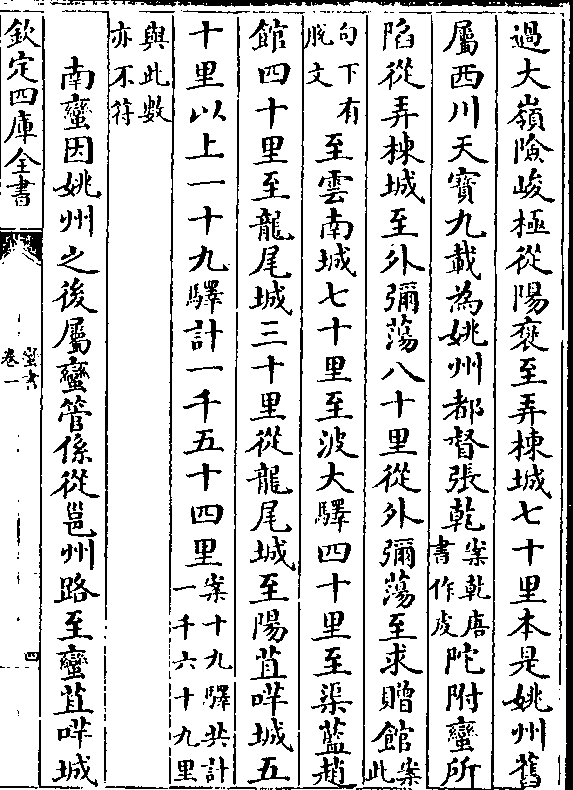 過大嶺險峻極從陽褒至弄棟城七十里本是姚州舊
屬西川天寶九載為姚州都督張乾案乾唐書作虔陀附蠻所
陷從弄棟城至外彌蕩八十里從外彌蕩至求贈館案此
句下有脫文至雲南城七十里至波大驛四十里至渠藍趙
館四十里至龍尾城三十里從龍尾城至陽苴咩城五
十里以上一十九驛計一千五十四里案十九驛共計一千六十九里
與此數亦不符
南蠻因姚州之後屬蠻管係從邕州路至蠻苴咩城
欽定四庫全書
蠻書
卷一
四